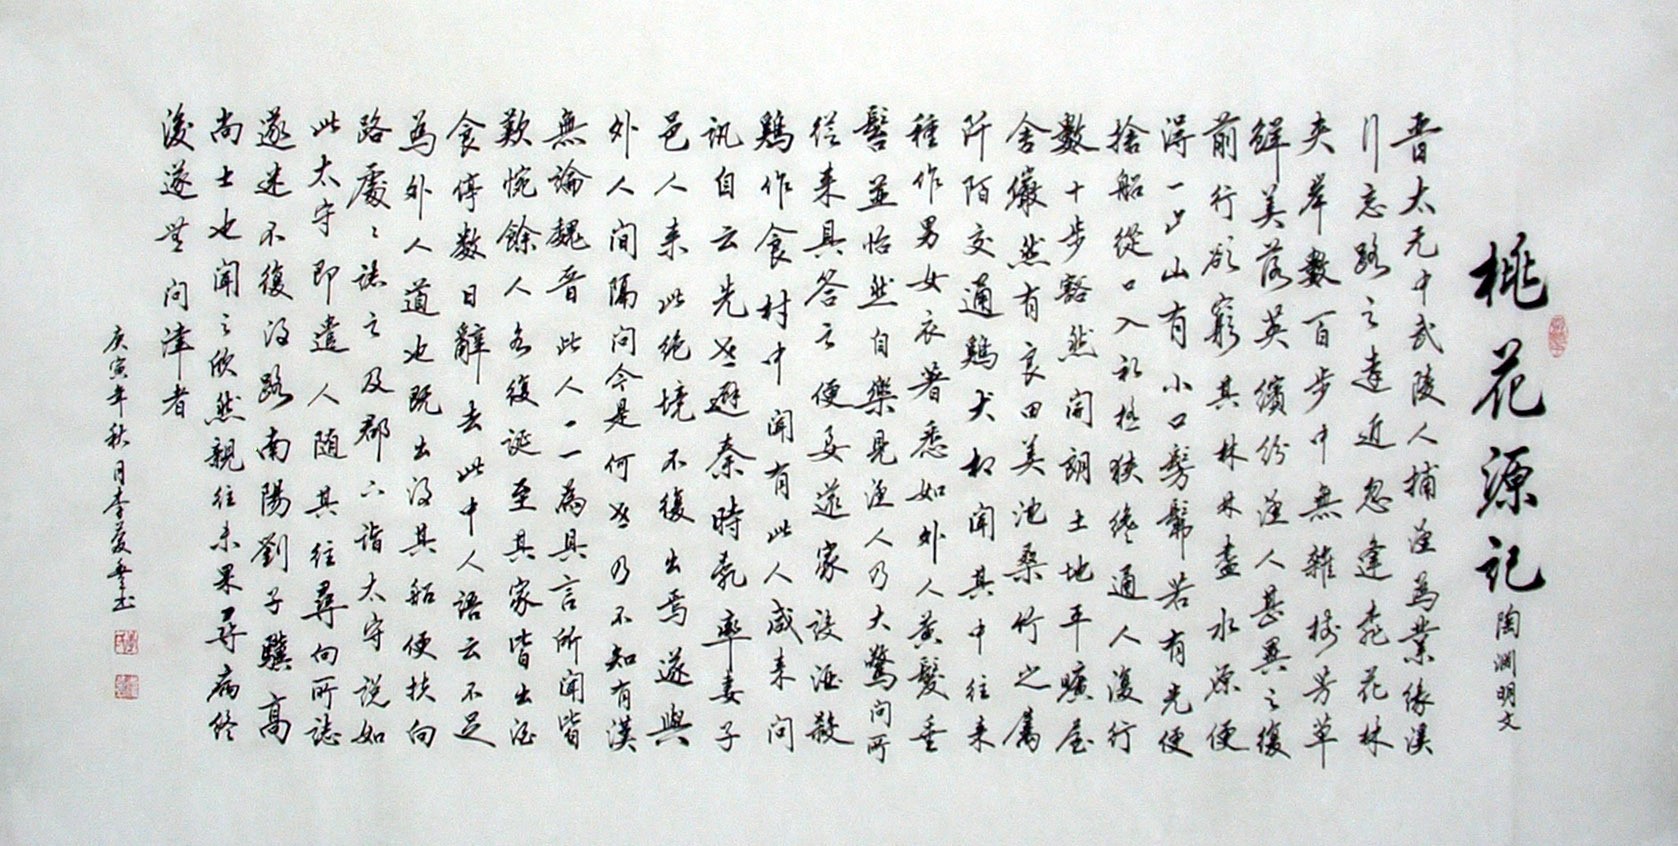 桃花源記
陶渊明文
晋太元中武陵人捕渔為業缘溪
行忘路之遠近忽逢桃花林
夹岸數百步中無雜樹芳草
鲜美落英缤纷渔人甚異之復
前行欲窮其林林盡水源便
得一山山有小口髣髴若有光便
捨船從口入初極狭纔通人復行
數十步豁然開朗土地平曠屋
舍儼然有良田美池桑竹之属
阡陌交通鷄犬相聞其中往来
種作男女衣著悉如外人黄髮垂
髫並怡然自樂見渔人乃大驚問所
從来具答之便要還家設酒殺
鷄作食村中聞有此人咸来問
訊自云先世避秦時亂率妻子
邑人来此绝境不復出焉遂與
外人間隔問今是何世乃不知有漢
無論魏晋此人一一為具言所聞皆
歎惋餘人各復延至其家皆出酒
食停数日辭去此中人語云不足
為外人道也既出得其船便扶向
路處〻誌之及郡下詣太守說如
此太守即遣人随其往尋向所誌
遂迷不復得路南陽劉子驥高
尚士也聞之欣然親往未果尋病终
後遂無問津者
庚寅年秋月李愛